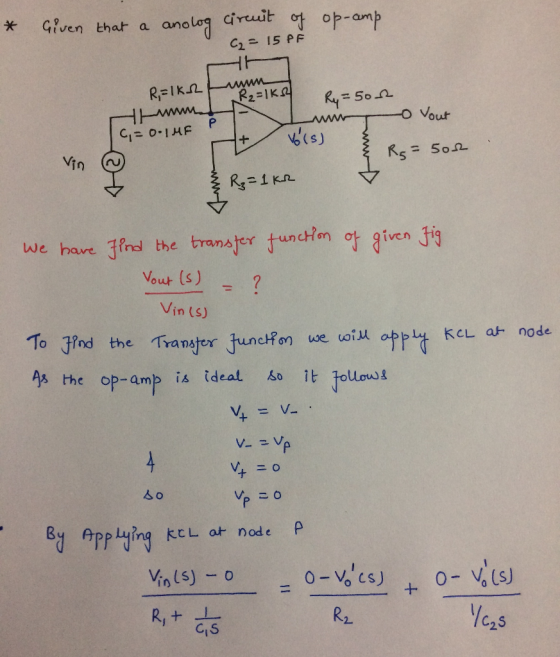 * Given that a analog circuit of op-amp
C₂ = 15 PF
R₁=1KΩ
R₂=1KΩ
R₄ = 50Ω
Vout
P
C₁ = 0.1µF
V₀'(s)
Vin
R₅ = 50Ω
R₃ = 1KΩ
-
+
We have find the transfer function of given fig
Vout (s)
= ?
Vin (s)
To find the Transfer function we will apply KCL at node
As the op-amp is ideal so it follows
V₊ = V₋ .
V₋ = Vp
& V₊ = 0
so Vp = 0
By Applying KCL at node P
Vin(s) - 0 = 0 - V₀'(s) + 0 - V₀'(s)
R₁ + 1/C₁S R₂ 1/C₂S